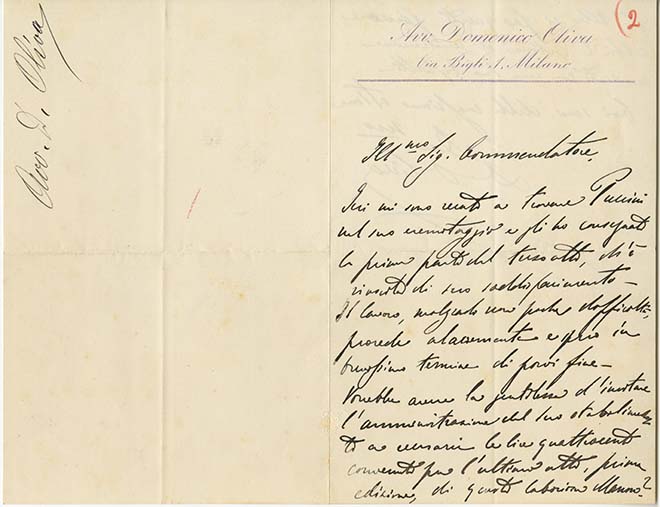 Avv. D. Oliva
2
Avv. Domenico Oliva
Via Bigli 1. Milano
Ill.mo Sig. Commendatore,
Ieri mi sono recato a trovare Puccini
nel suo eremitaggio e gli ho consegnato
la prima parte del terzo atto, ch'è
riuscita di suo soddisfacimento –
Il lavoro, malgrado non poche difficoltà,
procede alacremente e spero in
brevissimo termine di porvi fine –
Vorrebbe avere la gentilezza d'invitare
l'amministrazione del suo stabilimen-
to a versarmi le lire quattrocento
convenute per l'ultimo atto, prima
edizione, di questa laboriosa Manon?